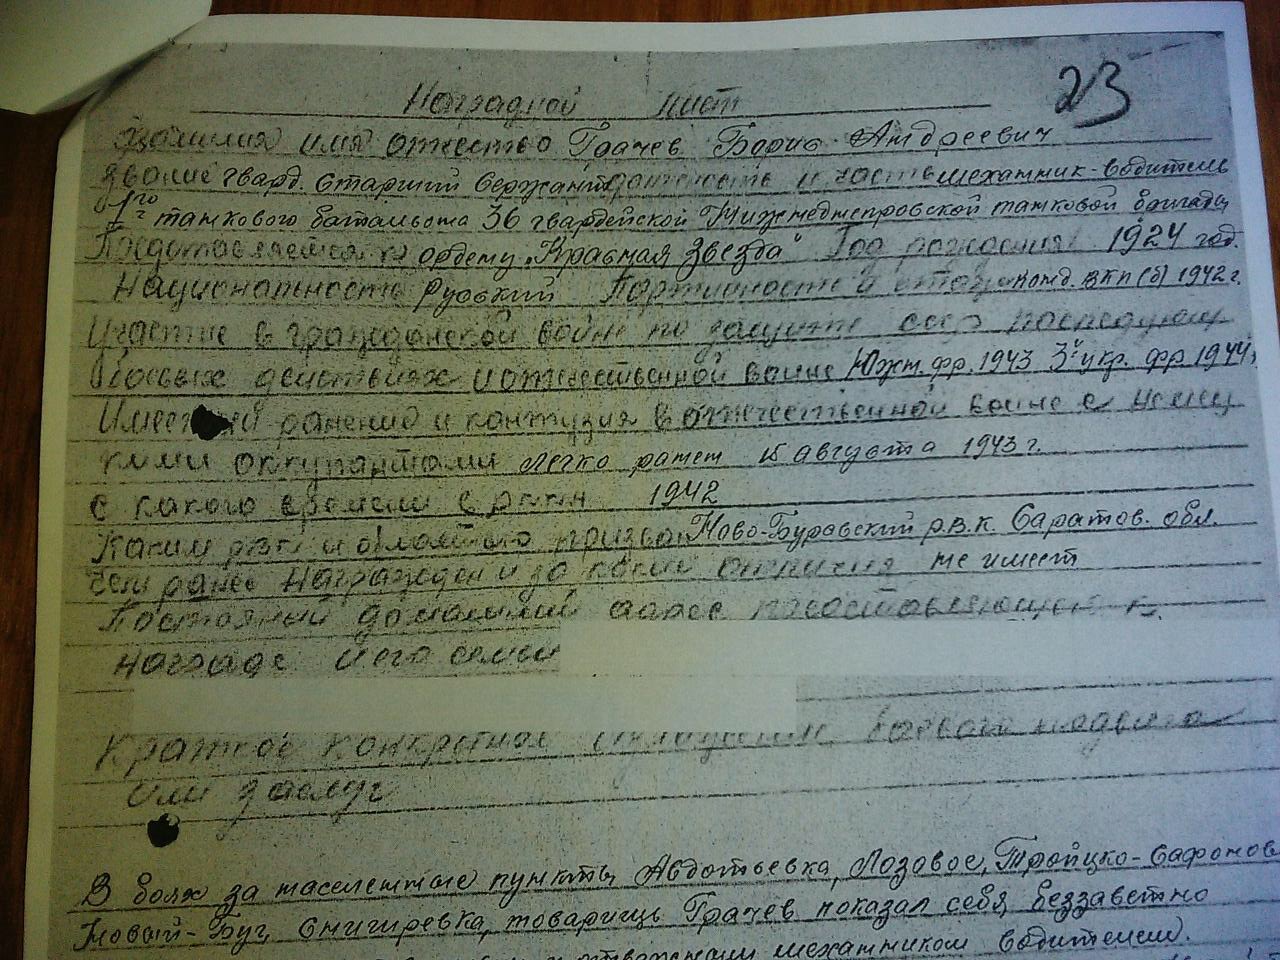 23
Наградной лист
Фамилия имя отчество Грачев Борис Андреевич
Звание гвард. Старший Сержант должность и часть механик-водитель
1го танкового батальона 36 гвардейской Нижнеднепровской танковой бригады
Представляется к ордену „Красная Звезда“ Год рождения 1924 год.
Национальность Русский Партийность и стаж канд. ВКП(б) 1942 г.
Участие в гражданской войне по защите СССР последующ
боевых действиях и отечественной войне Южн. фр. 1943 3й укр. фр. 1944
Имеет ли ранения и контузия в отечественной воине с немец
кими оккупантами легко ранен 15 августа 1943 г.
С какого времени в РККА 1942
Каким рвк и областью призван Ново-Буравский р.в.к. Саратов. обл.
Чем ранее награжден и за какие отличия не имеет
Постояный домашний адрес представляющег к
награде и его семьи
Краткое конкретное изложение боевого подвига
или заслуг
В боях за населенные пункты Авдотьевка, Лозовое, Тройцко-Сафонов
Новый-Буг, Снигиревка, товарищь Грачев показал себя беззаветно
и отважным механиком водителем.